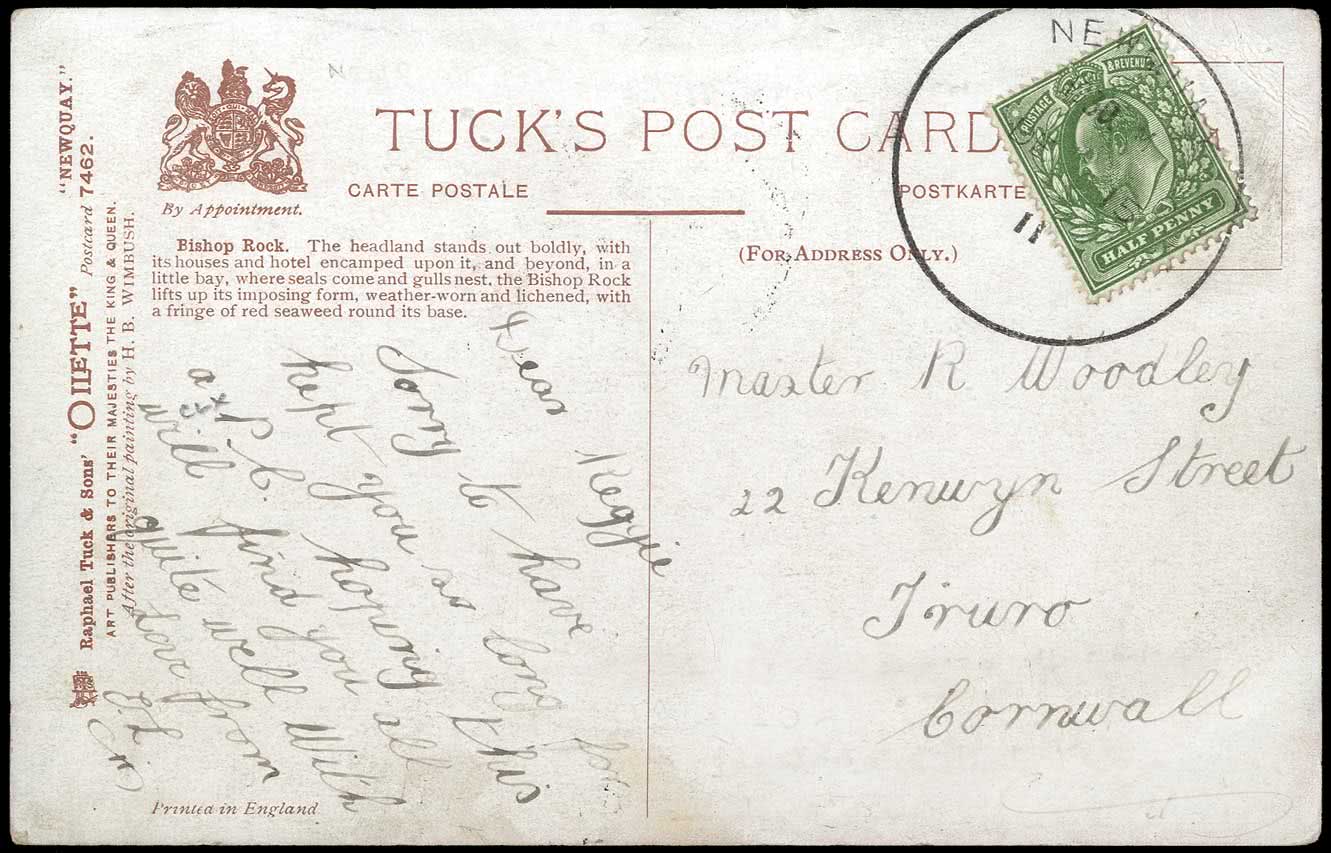 "NEWQUAY."
Raphael Tuck & Sons' "OILETTE" Postcard 7462.
ART PUBLISHERS TO THEIR MAJESTIES THE KING & QUEEN.
After the original painting by H. B. WIMBUSH.
By Appointment.
TUCK'S POST CARD
CARTE POSTALE
POSTKARTE
(FOR ADDRESS ONLY.)
Bishop Rock. The headland stands out boldly, with
its houses and hotel encamped upon it, and beyond, in a
little bay, where seals come and gulls nest, the Bishop Rock
lifts up its imposing form, weather-worn and lichened, with
a fringe of red seaweed round its base.
Dear Reggie
Sorry to have
kept you so long for
a P.C. hoping this
will find you al
quite well With
love from
Printed in England
NEWQUAY
11
POSTAGE & REVENUE
HALF PENNY
Master R Woodley
22 Kenwyn Street
Truro
Cornwall